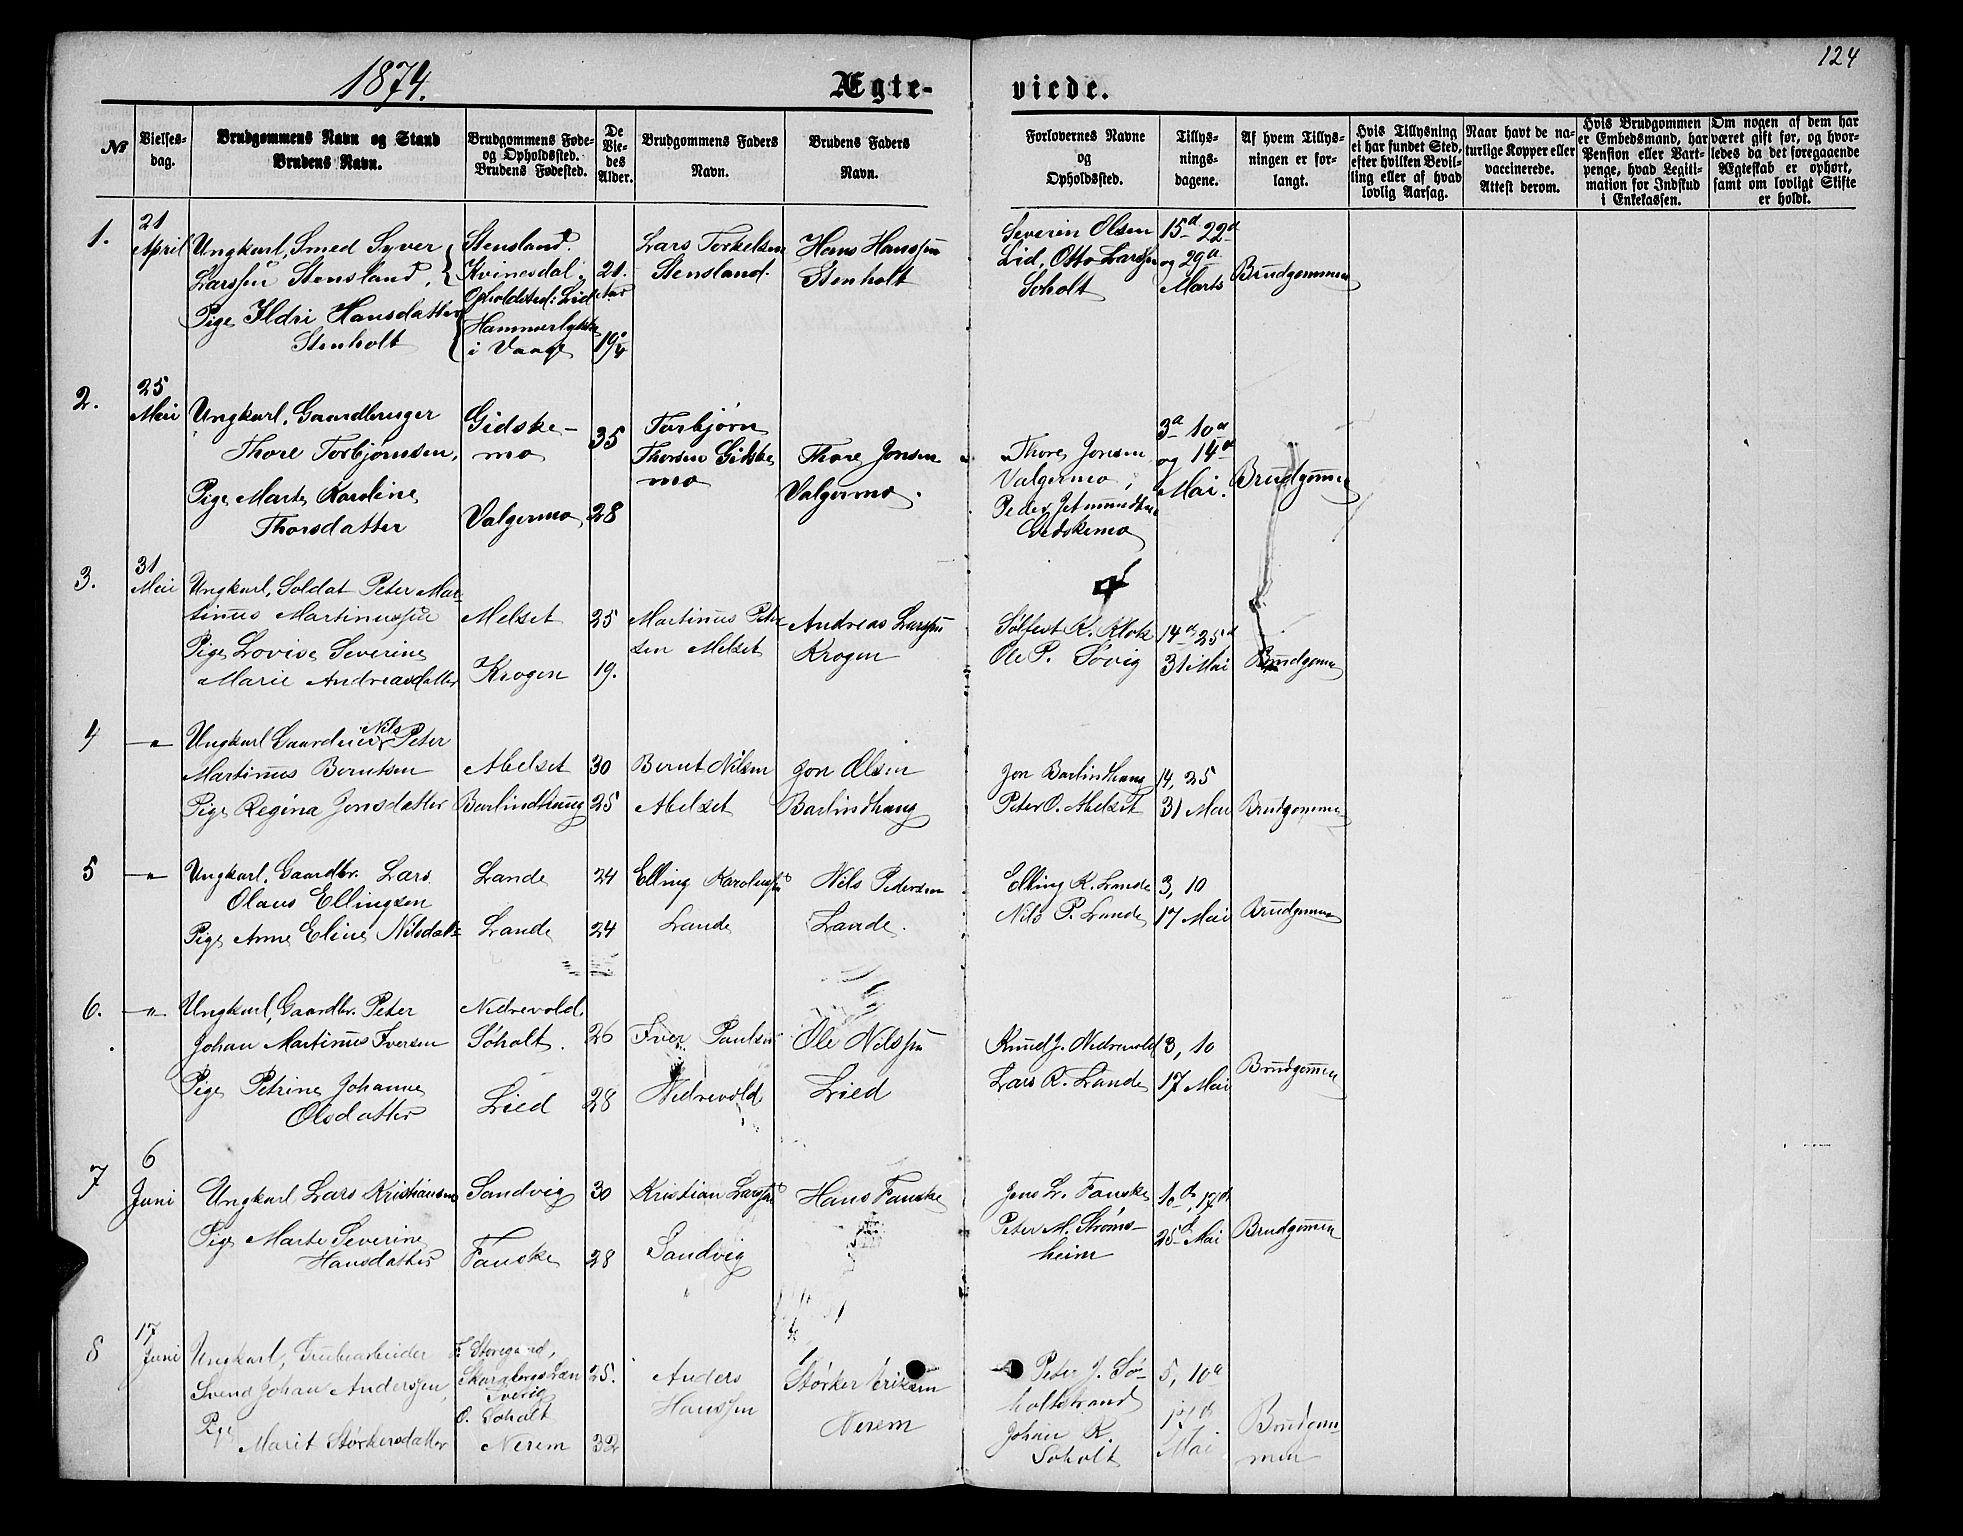 124
1874.
Ægte-
viede.
№
Vielses-
dag.
Brudgommens Navn og Stand
Brudens Navn.
Brudgommens Føde-
og Opholdssted.
Brudens Fødested.
De
Vie-
des
Alder.
Brudgommens Faders
Navn.
Brudens Faders
Navn.
Forlovernes Navne
og
Opholdssted.
Tillys-
nings-
dagene.
Af hvem Tillys-
ningen er for-
langt.
Hvis Tillysning
ei har fundet Sted,
efter hvilken Bevil-
ling eller af hvad
lovlig Aarsag.
Naar havt de na-
turlige Kopper eller
vaccinerede.
Attest derom.
Hvis Brudgommen
er Embedsmand, har
Pension eller Vart-
penge, hvad Legiti-
mation for Indskud
i Enkekassen.
Om nogen af dem har
været gift før, og hvor-
ledes da det foregaaende
Ægteskab er ophørt,
samt om lovligt Skifte
er holdt.
1.
21
April
Ungkarl, Smed Syver
Larssøn Stensland,
Pige Ildri Hansdatter
Stenholt
Stensland.
Kvinesdal,
Opholdsted: Lid
Hammerlykke
i Vaage
21.
19
Lars Torkelsen
Stensland.
Hans Hanssøn
Stenholt
Severin Olsen
Lid, Otto Larssøn
Soholt
15d 22d
og 29d
Marts
Brudgommen
2.
25
Mai
Ungkarl, Gaardbruger
Thore Torbjørnsen,
Pige Marte Karoline
Thorsdatter
Gidske-
mo
Valgermo
35
28
Torbjørn
Thorsen Gidske
mo
Thore Jonsen
Valgermo.
Thore Jonsen
Valgermo,
Peder Jetmundsen
Gidskemo
3d 10d
og 14d
Mai.
Brudgomen
3.
31
Mai
Ungkarl, Soldat Peter Mar-
tinus Martinussøn
Pige Lovise Severine
Marie Andreasdatter
Melset
Krogen
25
19.
Martinus Peter
sen Melset
Andreas Larssøn
Krogen
Sölfest K. Klok
Ole P. Søvig
14d 25d
31 Mai
Brudgomen
4
"
Ungkarl Gaardeier Nils Peter
Martinus Berntsen
Pige Regina Jonsdatter
Abelset
Barlindhaug
30
25
Bernt Nilsen
Abelset
Jon Olsen
Barlindhaug
Jon Barlindhaug
Peter O. Abelset
14, 25
31 Mai
Brudgommen
5
"
Ungkarl. Gaardbr. Lars
Olaus Ellingsen
Pige Anne Eline Nilsdat-
Lande
Lande
24
24
Elling Karolussøn
Lande
Nils Pedersen
Lande.
Elling K. Lande
Nils P. Lande
3, 10
17 Mai
Brudgomen
6.
"
Ungkarl, Gaardbr. Peter
Johan Martinus Iversen
Pige Petrine Johanne
Olsdatter
Nedrevold.
Søholt.
Lied
26
28
Iver Paulsen
Nedrevold
Ole Nilssøn
Lied
Knud J. Nedrevold
Lars K. Lande
3, 10
17 Mai
Brudgomen
7
6
Juni
Ungkarl Lars Kristiansen
Pige Marte Severine
Hansdatter
Sandvig
Fauske
30
28
Kristian Larssøn
Sandvig
Hans Fauske
Jens L. Fauske
Peter M. Strøms-
heim
10d, 17d
25d Mai
Brudgomen
8
17
Juni
Ungkarl, Grubearbeider
Svend Johan Anderssen,
Pige
Marit Størkersdatter
F. Storegaard,
Skaraborgs Læn
Sverig
O. Soholt
Nerem
25.
32
Anders
Hanssen
Størker Eriksen
Nerem
Peter J. Sø-
holtstrand
Johan K.
Soholt
5, 10d
17d
Mai
Brudgom-
men